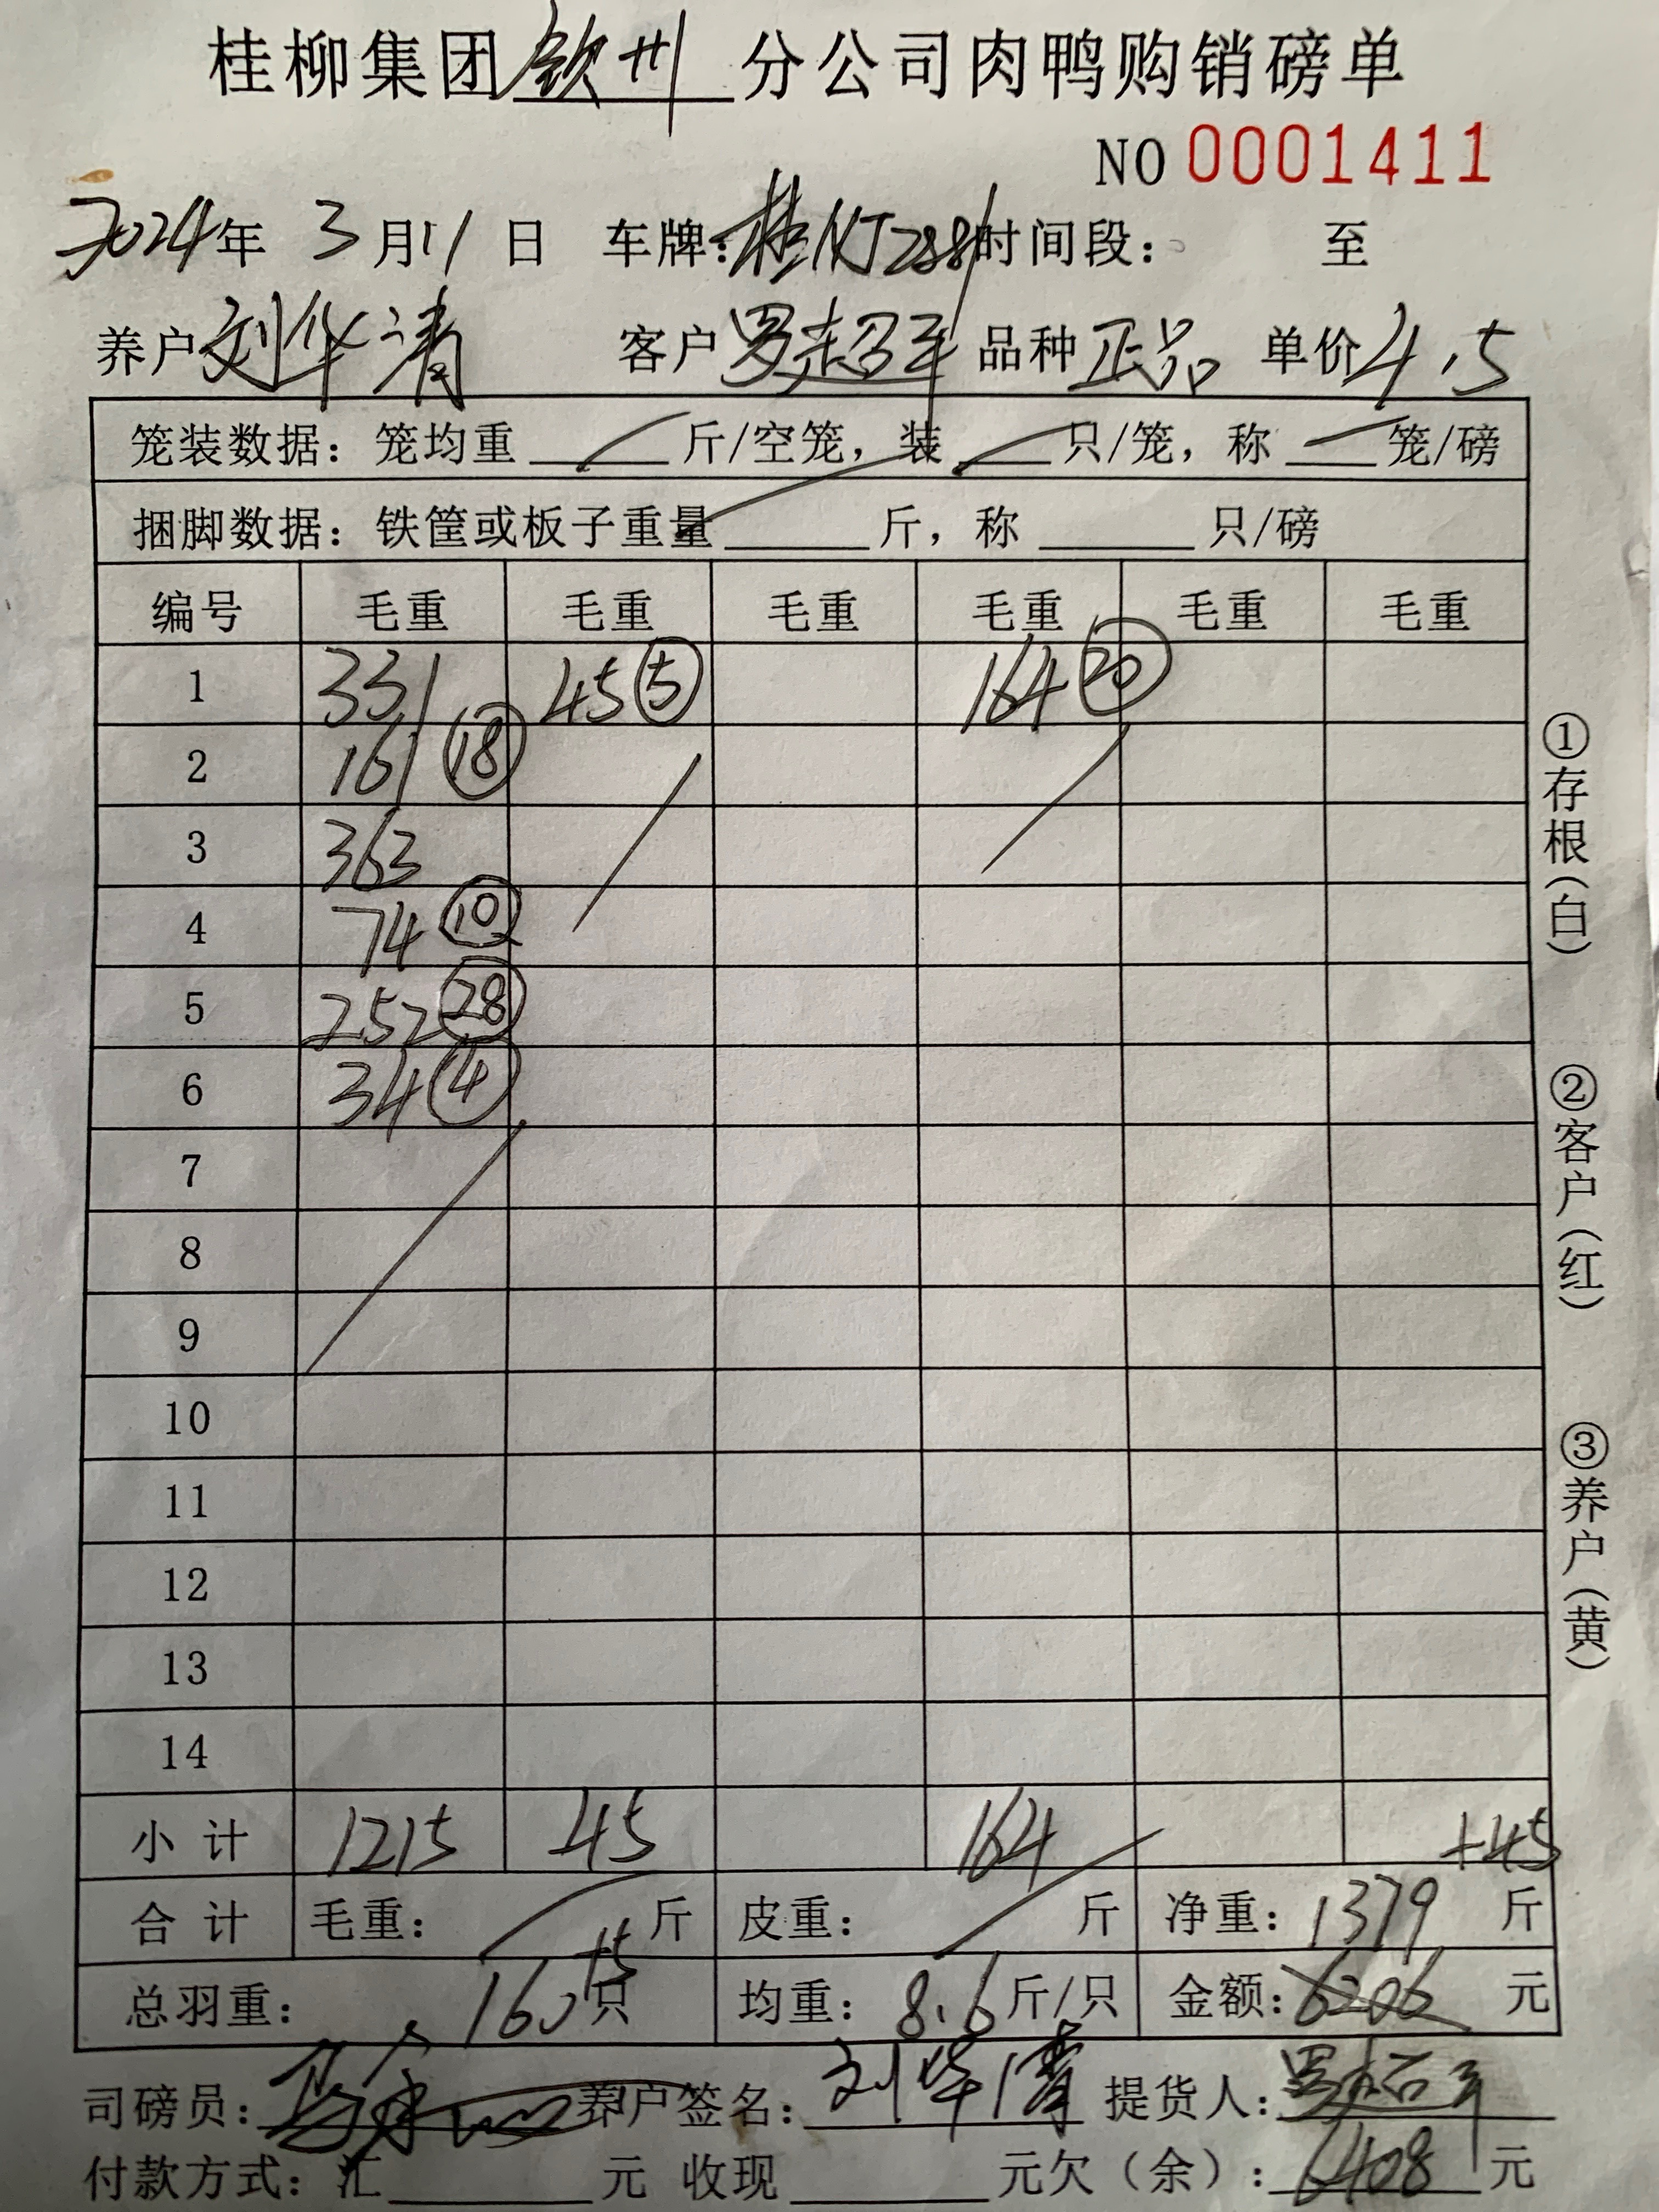 桂柳集团钦州分公司肉鸭购销磅单
NO 0001411
2024年 3月11日 车牌: 桂N 时间段: 至
养户 刘华清 客户 罗超军 品种 正品 单价 4.5
笼装数据: 笼均重 斤/空笼, 装 只/笼, 称 笼/磅
捆脚数据: 铁筐或板子重量 斤, 称 只/磅
编号 毛重 毛重 毛重 毛重 毛重 毛重
1 331 45 ⑤ 164 ⑳
2 161 ⑱
3 363
4 74 ⑩
5 252 ㉘
6 34 ④
7
8
9
10
11
12
13
14
小 计 1215 45 164 +45
合 计 毛重: 斤 皮重: 斤 净重: 1379 斤
总羽重: 160 +5 只 均重: 8.6 斤/只 金额: 6206 元
司磅员: 养户签名: 刘华清 提货人: 罗超军
付款方式: 汇 元 收现 元欠(余): 6408 元
①存根(白)
②客户(红)
③养户(黄)